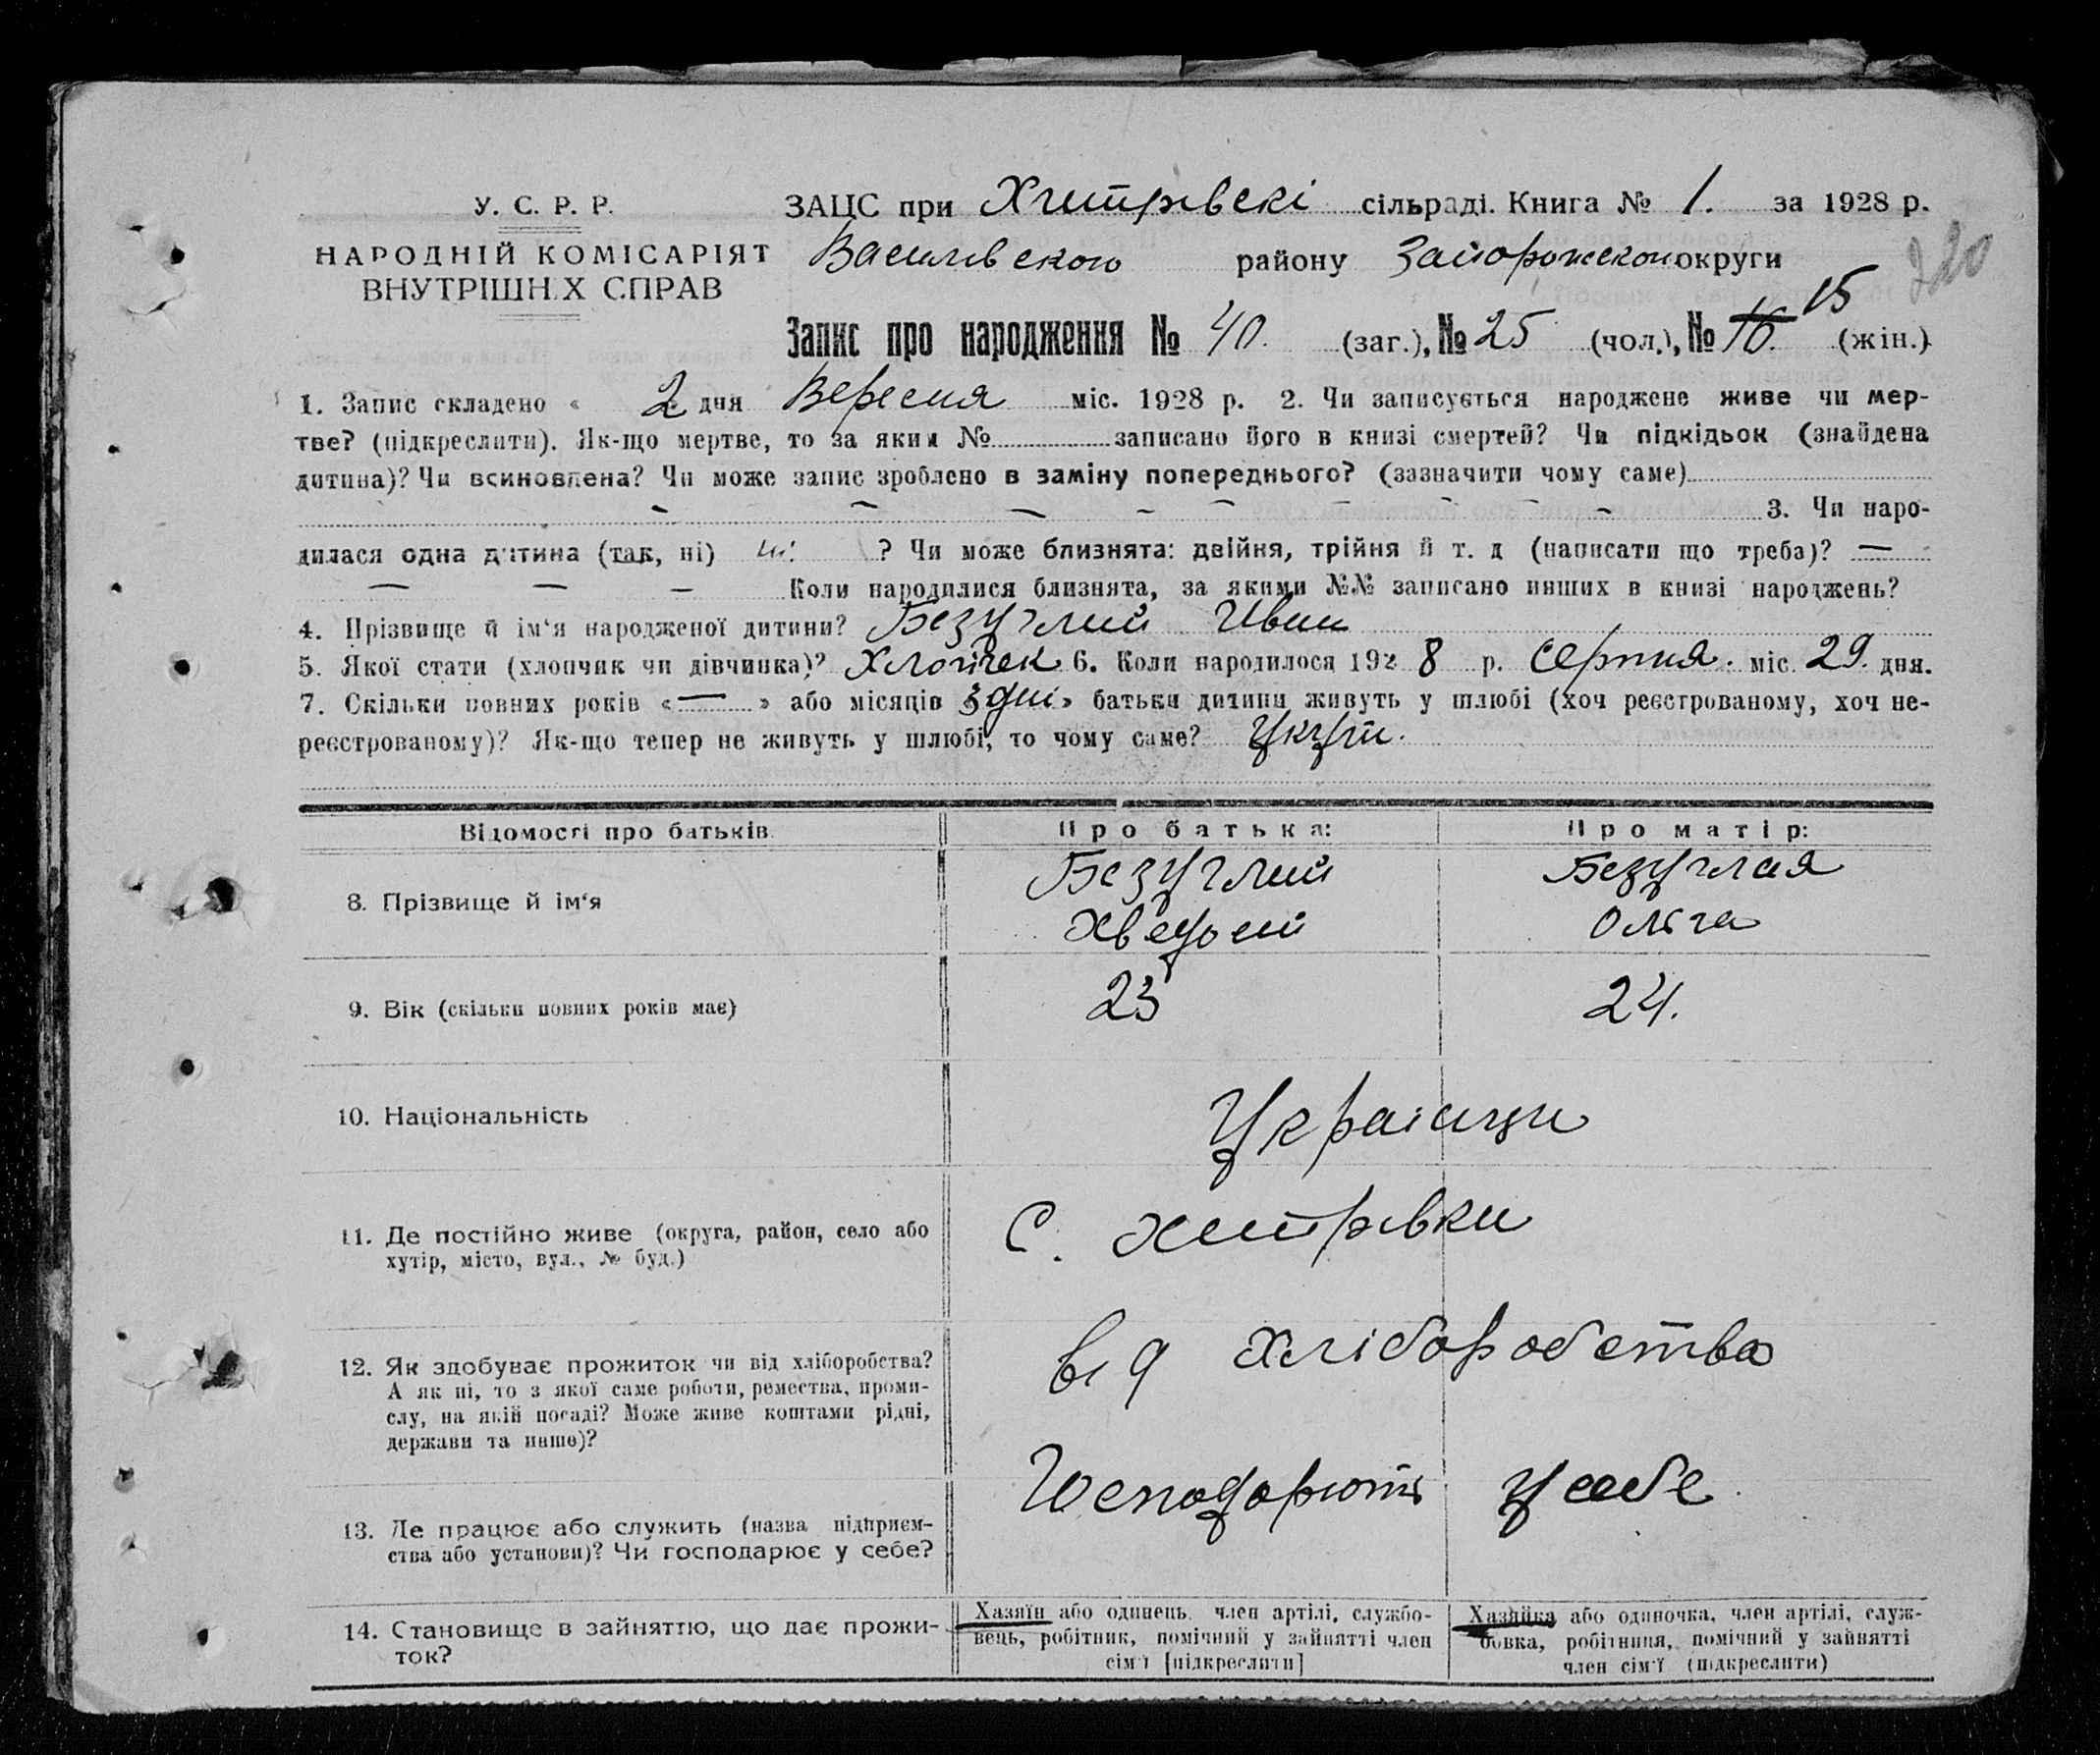 У. С. Р. Р.
НАРОДНІЙ КОМІСАРІЯТ
ВНУТРІШНІХ СПРАВ
ЗАЦС при Хитрівскі сільраді. Книга № 1. за 1928 р.
Василівского району Запорожскои округи
220
Запис про народження № 40. (заг.), № 25 (чол.), № 16. 15 (жін.)
1. Запис складено « 2 дня Вересня міс. 1928 р. 2. Чи записується народжене живе чи мер-
тве? (підкреслити). Як-що мертве, то за яким № записано його в книзі смертей? Чи підкідьок (знайдена
дитина)? Чи всиновлена? Чи може запис зроблено в заміну попереднього? (зазначити чому саме)
— — — — — — — 3. Чи наро-
дилася одна дитина (так, ні) ? Чи може близнята: двійня, трійня й т. д (написати що треба)? —
— — — Коли народилися близнята, за якими №№ записано инших в книзі народжень?
4. Прізвище й ім'я народженої дитини? Безуглий Иван
5. Якої стати (хлопчик чи дівчинка)? Хлопчек 6. Коли народилося 192 8 р. Серпня. міс. 29. дня.
7. Скільки повних років « — » або місяців 3 дні » батьки дитини живуть у шлюбі (хоч реєстрованому, хоч не-
реєстрованому)? Як-що тепер не живуть у шлюбі, то чому саме?
Відомості про батьків Про батька: Про матір:
8. Прізвище й ім'я Безуглий Безуглая
Хведосій Ольга
9. Вік (скільки повних років має) 23 24.
10. Національність Украінци
11. Де постійно живе (округа, район, село або
хутір, місто, вул., № буд.) С. Хитрівки
12. Як здобуває прожиток чи від хліборобства?
А як ні, то з якої саме роботи, ремества, проми-
слу, на якій посаді? Може живе коштами рідні,
держави та инше)? від Хліборобства
13. Де працює або служить (назва підприєм-
ства або установи)? Чи господарює у себе? у себе
14. Становище в зайняттю, що дає прожи-
ток?
Хазяїн або одинець, член артілі, службо-
вець, робітник, помічний у зайнятті член
сім'ї [підкреслити]
Хазяйка або одиночка, член артілі, служ-
бовка, робітниця, помічний у зайнятті
член сім'ї (підкреслити)